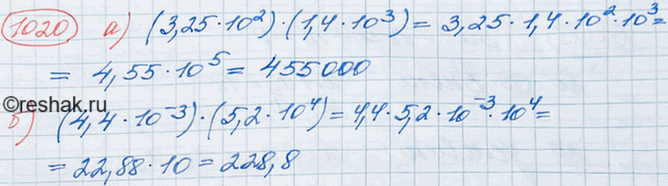 1020 а) (3,25·10²)·(1,4·10³) = 3,25·1,4·10²·10³=
= 4,55·10⁵ = 455000
©reshak.ru
б) (4,4·10⁻³)·(5,2·10⁴) = 4,4·5,2·10⁻³·10⁴=
= 22,88·10 = 228,8